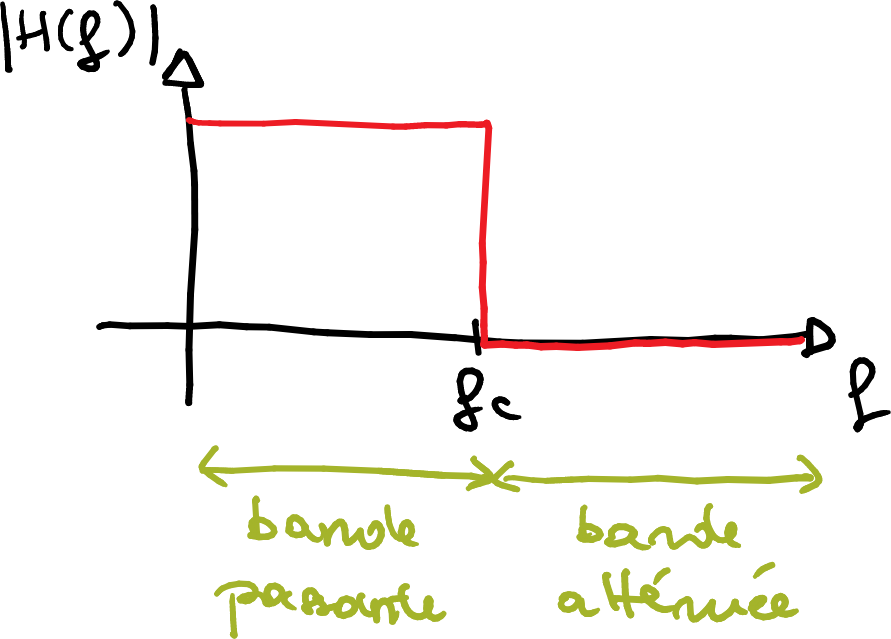 |H(f)|
fc
f
bande
passante
bande
atténuée